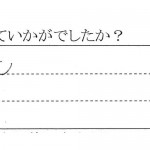 ていかがでしたか？